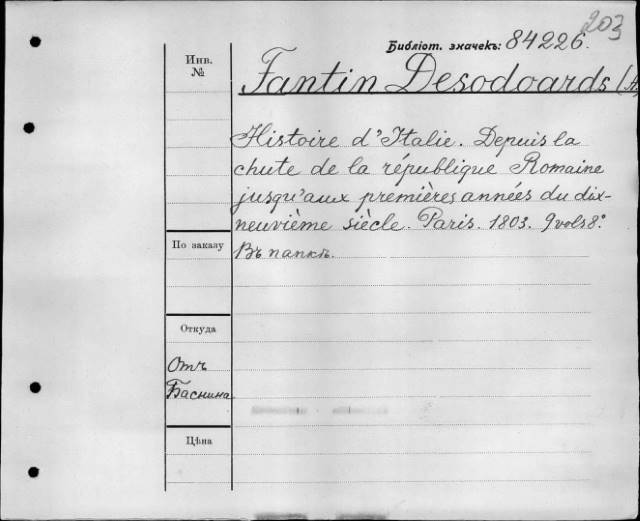 203
Библіот. значекъ: 84226.
Инв.
№
Fantin Desodoards (A
Histoire d'Italie. Depuis la
chute de la république Romaine
jusqu'aux premières années du dix-
neuvième siècle. Paris. 1803. 9 vols 8º
Въ папкѣ.
По заказу
Откуда
Отъ
Баснина
Цѣна